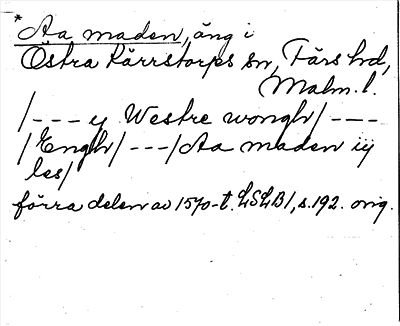 * Aa maden, äng i
Östra Kärrstorps sn, Färs hd,
Malm. l.
/--- y Westre wongh/ ---
/Engh/ ---/Aa maden iij
les/
förra delen av 1570-t. LSLB1, s. 192. orig.